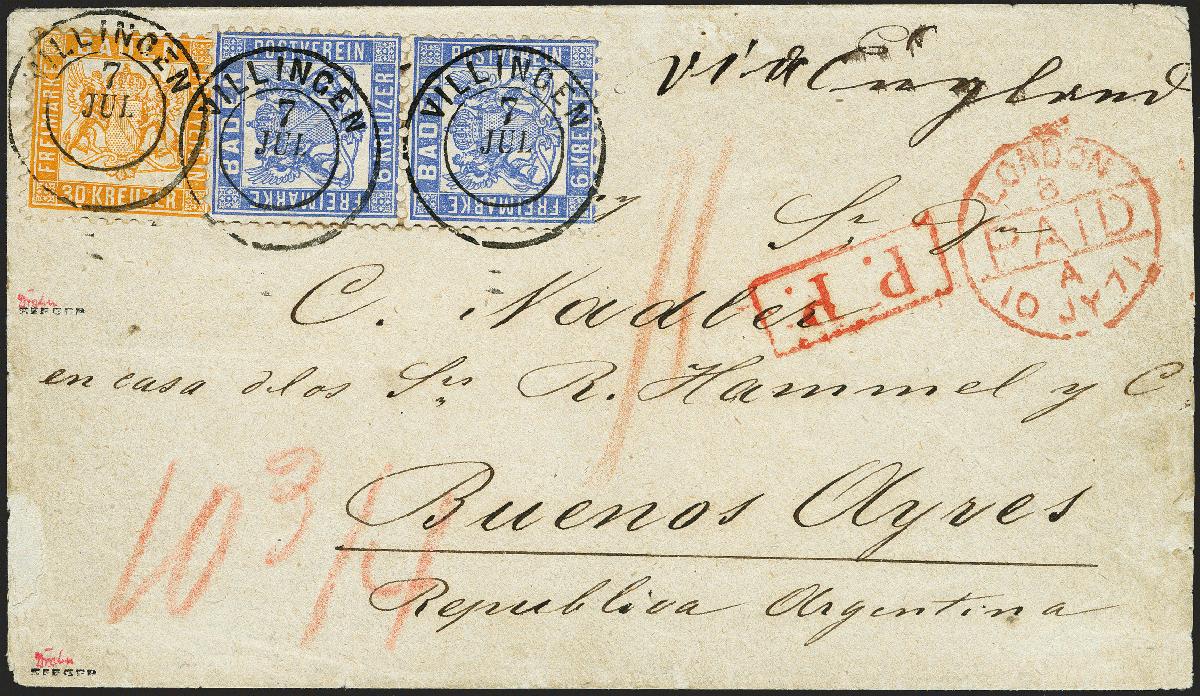 BADEN
FREIMARKE
30.KREUZER
VILLINGEN
7
JUL
POSTVEREIN
BADEN
6 KREUZER
FREIMARKE
VILLINGEN
7
JUL
POSTVEREIN
BADEN
6 KREUZER
FREIMARKE
VILLINGEN
7
JUL
via England
LONDON
8
PAID
A
10 JY 71
Sr. Dn
P. P.
C. Nadler
en casa de los Srs R. Hammel y C.
Buenos Ayres
Republica Argentina
10 3/4
SEEGER
SEEGER